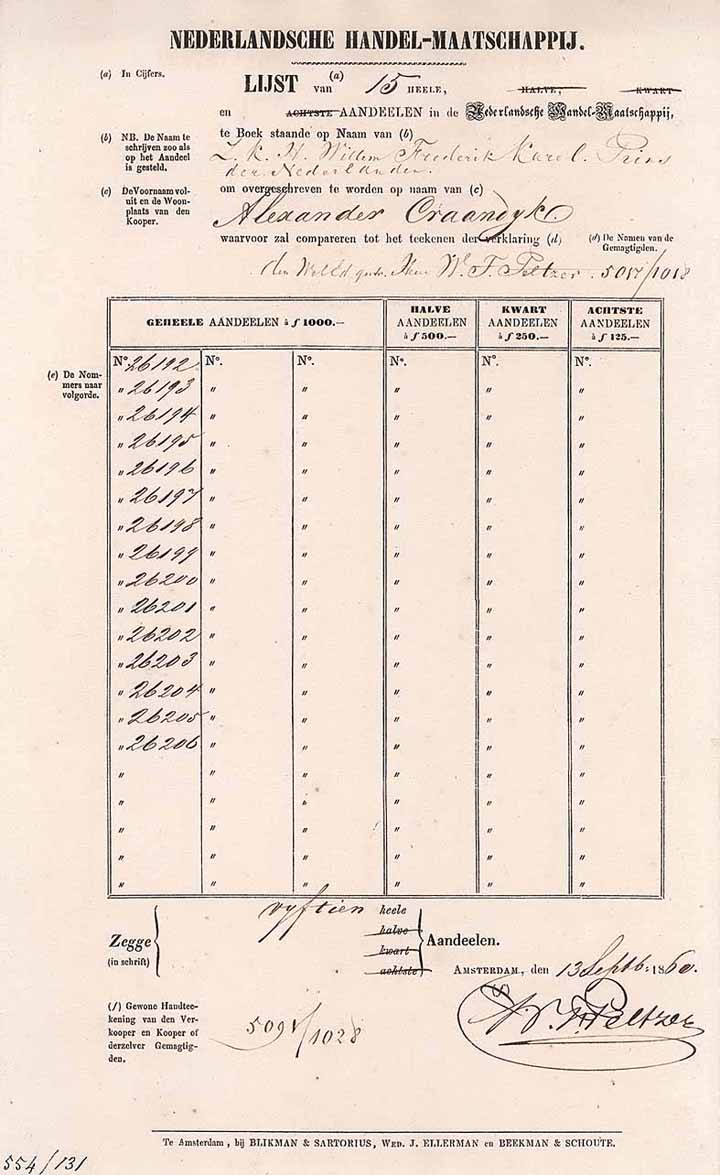 NEDERLANDSCHE HANDEL-MAATSCHAPPIJ.
(a) In Cijfers.
LIJST van (a) 15 HEELE, HALVE, KWART
en ACHTSTE AANDEELEN in de Nederlandsche Handel-Maatschappij,
(b) NB. De Naam te schrijven zoo als op het Aandeel is gesteld.
te Boek staande op Naam van (b)
Z. K. H. Willem Frederik Karel. Prins
der Nederlanden.
(c) De Voornaam voluit en de Woonplaats van den Kooper.
om overgeschreven te worden op naam van (c)
Alexander Craandyk
waarvoor zal compareren tot het teekenen der verklaring (d)
(d) De Namen van de Gemagtigden.
den Heer W. F. Peltzer
GEHEELE AANDEELEN à ƒ 1000.—
HALVE AANDEELEN à ƒ 500.—
KWART AANDEELEN à ƒ 250.—
ACHTSTE AANDEELEN à ƒ 125.—
(e) De Nommers naar volgorde.
No. 26192 No. No. No. No. No.
" 26193 " " " " "
" 26194 " " " " "
" 26195 " " " " "
" 26196 " " " " "
" 26197 " " " " "
" 26198 " " " " "
" 26199 " " " " "
" 26200 " " " " "
" 26201 " " " " "
" 26202 " " " " "
" 26203 " " " " "
" 26204 " " " " "
" 26205 " " " " "
" 26206 " " " " "
" " " " " "
" " " " " "
" " " " " "
" " " " " "
" " " " " "
Zegge (in schrift)
vyftien heele
halve
kwart
achtste
Aandeelen.
AMSTERDAM, den 13 Septb. 1860.
(f) Gewone Handteekening van den Verkooper en Kooper of derzelver Gemagtigden.
/1028
W. F. Peltzer
Te Amsterdam, bij BLIKMAN & SARTORIUS, WED. J. ELLERMAN en BEEKMAN & SCHOUTE.
554/131